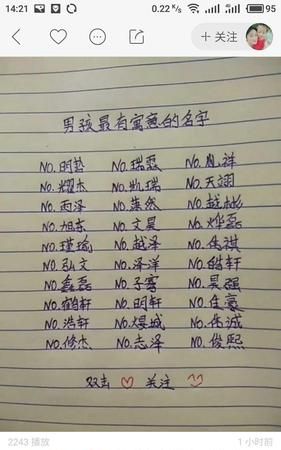 14:21 0.22 K/s 4G 4G 95
+ 关注
男孩最有寓意的名字
NO.明哲 NO.瑞霖 NO.胤祥
NO.耀杰 NO.凯瑞 NO.天翊
NO.雨泽 NO.昊然 NO.越彬
NO.旭东 NO.文昊 NO.烨磊
NO.瑾瑜 NO.越泽 NO.伟祺
NO.弘文 NO.泽洋 NO.皓轩
NO.鑫磊 NO.子骞 NO.昊强
NO.鹤轩 NO.明轩 NO.子豪
NO.浩轩 NO.煜城 NO.伟诚
NO.修杰 NO.志泽 NO.俊熙
双击 关注
2243 播放 1 小时前